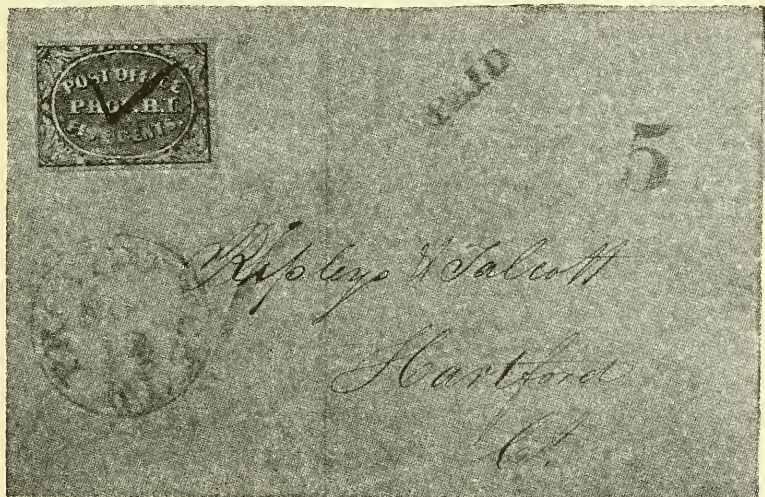 POST OFFICE
PROV. R.I.
FIVE CENTS.
PAID
5
Ripleys & Talcott
Hartford
Ct.